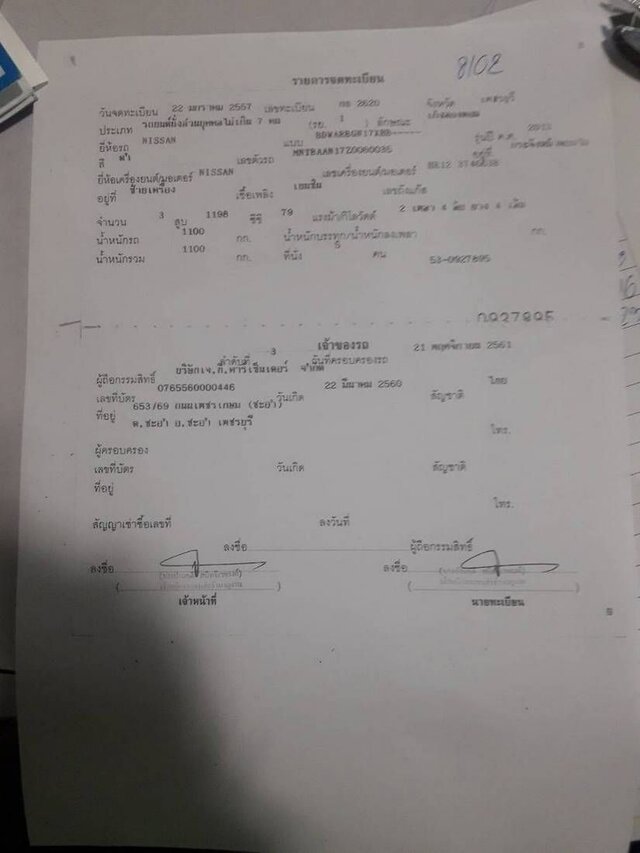 8102
รายการจดทะเบียน
วันจดทะเบียน 22 มกราคม 2557 เลขทะเบียน กธ 2620 จังหวัด เพชรบุรี
ประเภท รถยนต์นั่งส่วนบุคคลไม่เกิน 7 คน (รย. 1 ) ลักษณะ เก๋งสองตอน
ยี่ห้อรถ NISSAN แบบ รุ่นปี ค.ศ. 2013
สี ดำ เลขตัวรถ อยู่ที่
ยี่ห้อเครื่องยนต์/มอเตอร์ NISSAN เลขเครื่องยนต์/มอเตอร์
อยู่ที่ ซ้ายเครื่อง เชื้อเพลิง เบนซิน เลขถังแก๊ส
จำนวน 3 สูบ 1198 ซีซี 79 แรงม้า/กิโลวัตต์ 2 เพลา 4 ล้อ ยาง 4 เส้น
น้ำหนักรถ 1100 กก. น้ำหนักบรรทุก/น้ำหนักลงเพลา กก.
น้ำหนักรวม 1100 กก. ที่นั่ง 5 คน 53-0927895
0927895
เจ้าของรถ
ลำดับที่ 3 วันที่ครอบครองรถ 21 พฤศจิกายน 2561
ผู้ถือกรรมสิทธิ์ จำกัด
เลขที่บัตร 0765560000446 วันเกิด 22 มีนาคม 2560 สัญชาติ ไทย
ที่อยู่ 653/69 ถนนเพชรเกษม (ชะอำ)
ต.ชะอำ อ.ชะอำ เพชรบุรี โทร.
ผู้ครอบครอง
เลขที่บัตร วันเกิด สัญชาติ
ที่อยู่
โทร.
สัญญาเช่าซื้อเลขที่ ลงวันที่
ลงชื่อ ผู้ถือกรรมสิทธิ์
ลงชื่อ ลงชื่อ
เจ้าหน้าที่ นายทะเบียน